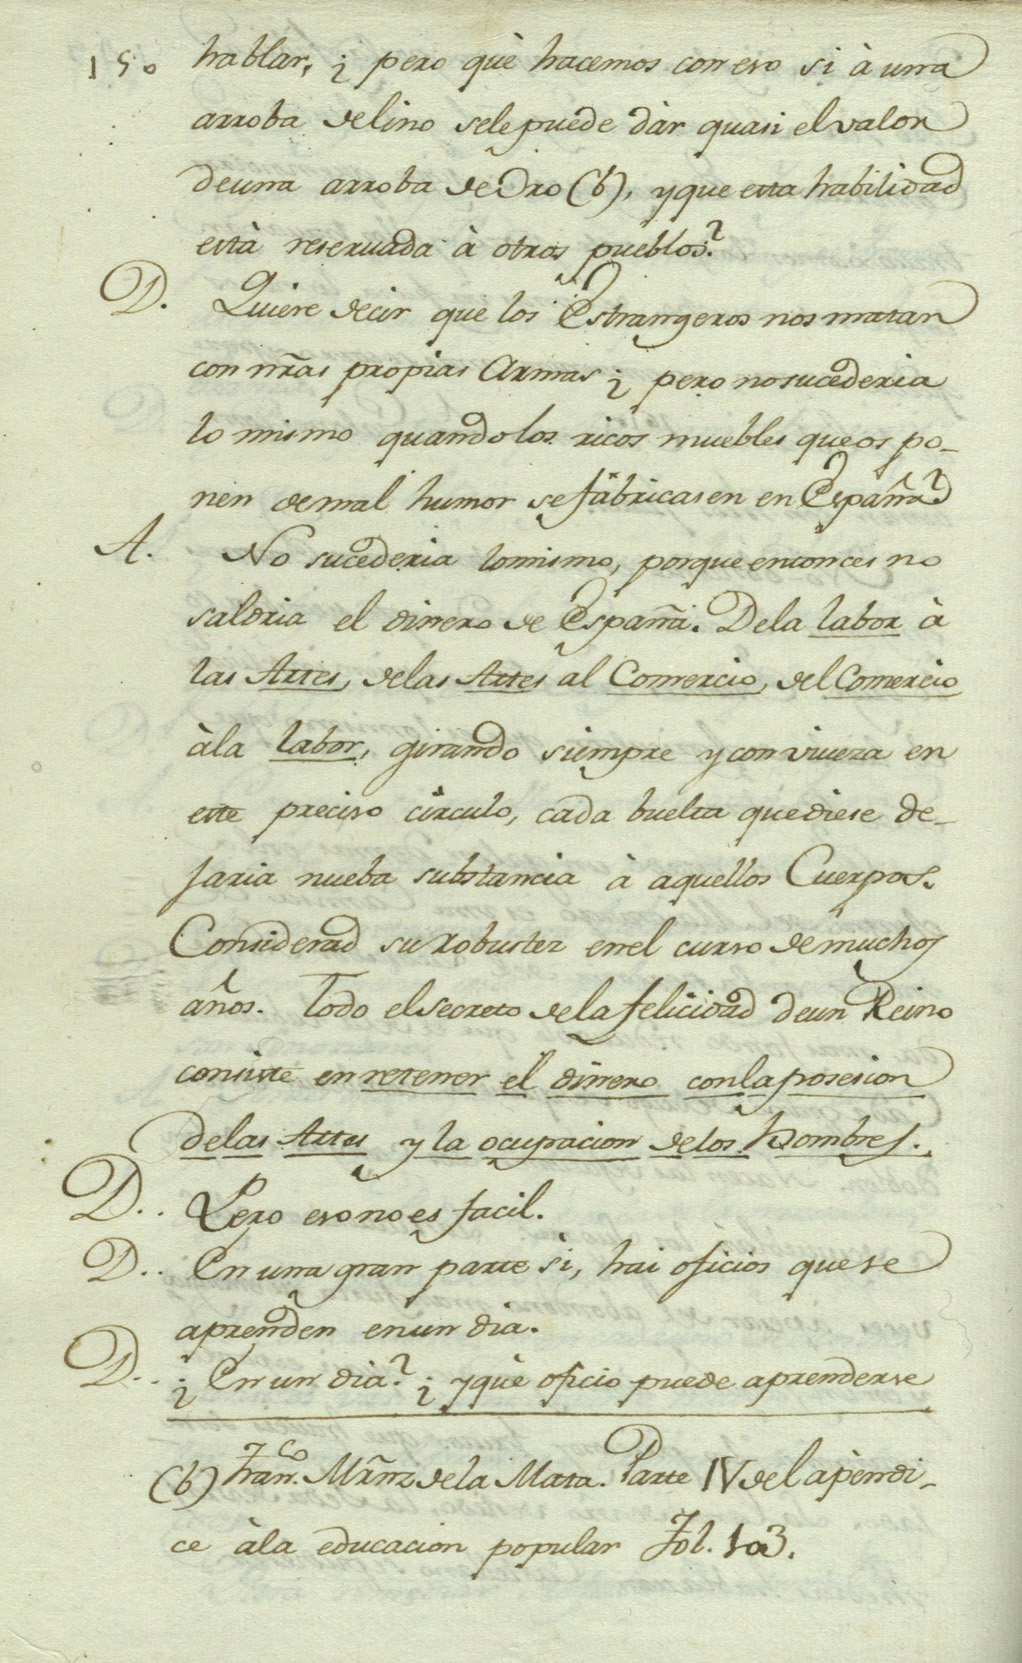 150 hablar, ¿ pero què hacemos con eso si à una
arroba de lino se le puede dàr quasi el valor
de una arroba de Oro (b), y que esta habilidad
està reservada à otros pueblos?
D. Quiere decir que los Estrangeros nos matan
con nr̃as propias Armas ¿ pero no sucederia
lo mismo quando los ricos muebles que os po-
nen de mal humor se fàbricasen en España?
A. No sucederia lo mismo, porque entonces no
saldria el dinero de España. De la labor à
las Artes, de las Artes al Comercio, del Comercio
à la labor, girando siempre y con viveza en
este preciso circulo, cada buelta que diese de-
jaria nueba substancia à aquellos Cuerpos.
Considerad su robustez en el curso de muchos
años. Todo el secreto de la felicidad de un Reino
consiste en retener el dinero con la posesion
de las Artes y la ocupacion de los Hombres.
D.. Pero eso no es facil.
D.. En una gran parte si, hai oficios que se
aprenden en un dia.
D.. ¿ En un dia? ¿ y què oficio puede aprenderse
(b) Fran.co Mr̃nz de la Mata. Parte IV del apendi-
ce à la educacion popular Fol. 103.